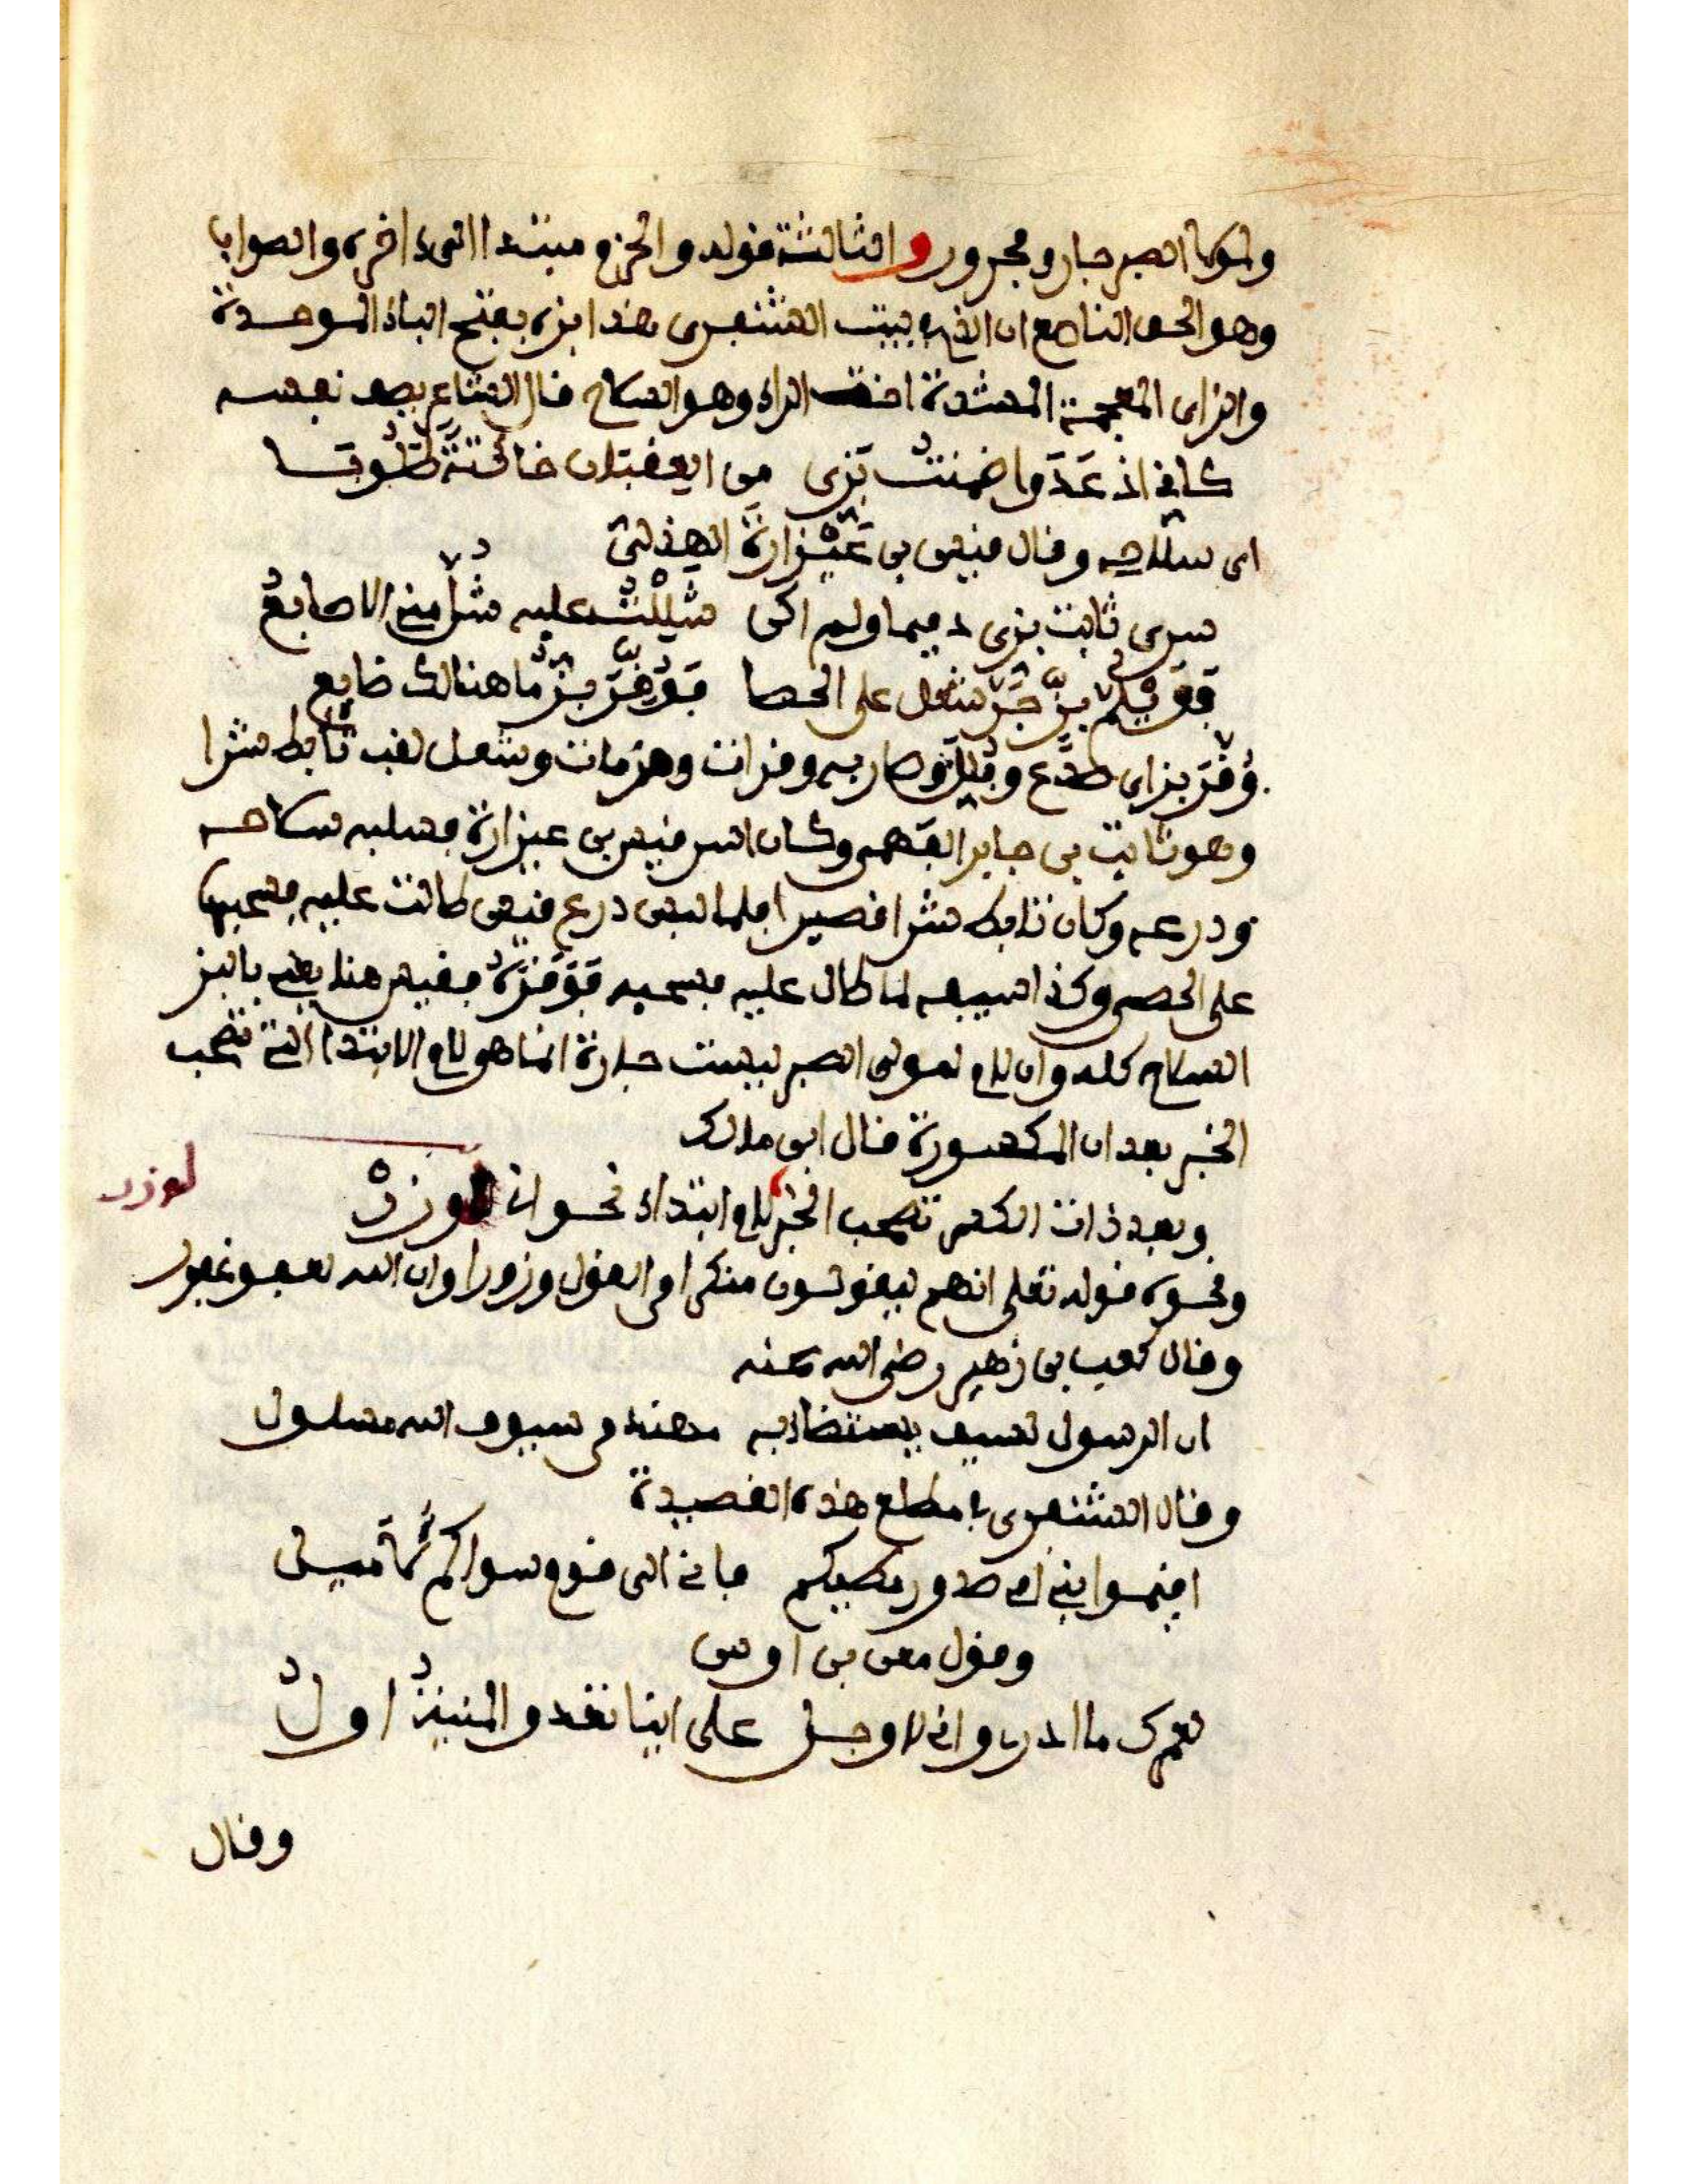 ولمولى الصبر جار ومجرور والثالثة قوله والحزم مبتدا الى اخره والصواب
وهو الحق الناصع ان الذي ببيت الشنفرى هذا بزه بفتح الباء الموحدة
والزاى المعجمة المشددة اخت الراء وهو السلاح قال الشاعر يصف نفسه
كانى اذ عدوا ضمنت بزى من العقبان خائتة طلوبا
اى سلاحى وقال قيس بن عيزارة الهذلى
سرى ثابت بزى ذميما ولم اكن سللت عليه شل منى الاصابع
فويلم بز جر شعل على الحصا فوقر بز ما هنالك ضايع
وقر بز اى صدع وفلل وصار به وقرات وهزمات وشعل لقب تابط شرا
وهو ثابت بن جابر الفهمى وكان اسر قيس بن عيزارة فسلبه سلاحه
ودرعه وكان تابط شرا قصيرا فلما لبس درع قيس طالت عليه فسحبها
على الحصى وكذا سيفه لما طال عليه فسحبه فوقره فقيس هنا يعنى بالبز
السلاح كله وان لام لمولى الصبر ليست جارة انما هو لام الابتداء التى تصحب
الخبر بعد ان المكسورة قال ابن مالك
وبعد ذات الكسر تصحب الخبر لام ابتداء نحو انى لوزر
لوزر
ونحوه قوله تعلى انهم ليقولون منكرا من القول وزورا وان الله لعفو غفور
وقال كعب بن زهير رضى الله عنه
ان الرسول لسيف يستضاء به مهند من سيوف الله مسلول
وقال الشنفرى فى مطلع هذه القصيدة
اقيموا بنى امى صدور مطيكم فانى الى قوم سواكم لاميل
وقول معن بن اوس
لعمرك ما ادرى وانى لاوجل على اينا تغدو المنية اول
وقال